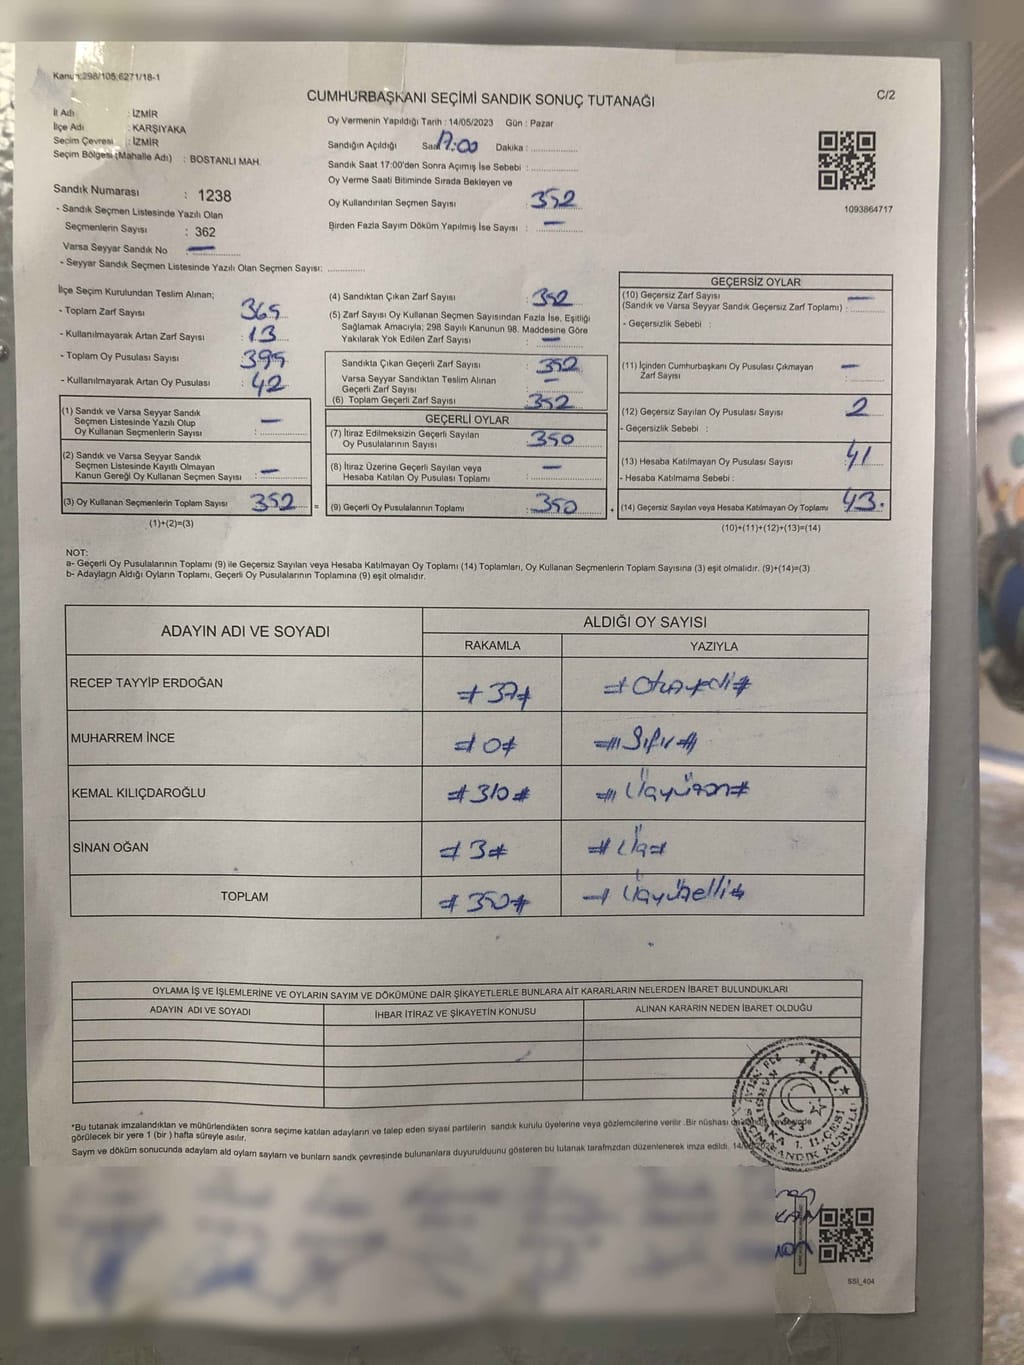 Kanun:298/105,6271/18-1
CUMHURBAŞKANI SEÇİMİ SANDIK SONUÇ TUTANAĞI
C/2
İl Adı : İZMİR
İlçe Adı : KARŞIYAKA
Seçim Çevresi : İZMİR
Seçim Bölgesi (Mahalle Adı) : BOSTANLI MAH.
Sandık Numarası : 1238
- Sandık Seçmen Listesinde Yazılı Olan
Seçmenlerin Sayısı : 362
Varsa Seyyar Sandık No —
- Seyyar Sandık Seçmen Listesinde Yazılı Olan Seçmen Sayısı: ..............
Oy Vermenin Yapıldığı Tarih : 14/05/2023 Gün : Pazar
Sandığın Açıldığı Saat 17:00 Dakika : ..............
Sandık Saat 17:00'den Sonra Açımış İse Sebebi : ..............
Oy Verme Saati Bitiminde Sırada Bekleyen ve
Oy Kullandırılan Seçmen Sayısı : 352
Birden Fazla Sayım Döküm Yapılmış İse Sayısı : —
1093864717
İlçe Seçim Kurulundan Teslim Alınan;
- Toplam Zarf Sayısı : 365
- Kullanılmayarak Artan Zarf Sayısı : 13
- Toplam Oy Pusulası Sayısı : 395
- Kullanılmayarak Artan Oy Pusulası : 42
(1) Sandık ve Varsa Seyyar Sandık
Seçmen Listesinde Yazılı Olup
Oy Kullanan Seçmenlerin Sayısı : —
(2) Sandık ve Varsa Seyyar Sandık
Seçmen Listesinde Kayıtlı Olmayan
Kanun Gereği Oy Kullanan Seçmen Sayısı : —
(3) Oy Kullanan Seçmenlerin Toplam Sayısı : 352 =
(1)+(2)=(3)
(4) Sandıktan Çıkan Zarf Sayısı : 352
(5) Zarf Sayısı Oy Kullanan Seçmen Sayısından Fazla İse, Eşitliği
Sağlamak Amacıyla; 298 Sayılı Kanunun 98. Maddesine Göre
Yakılarak Yok Edilen Zarf Sayısı : —
Sandıkta Çıkan Geçerli Zarf Sayısı : 352
Varsa Seyyar Sandıktan Teslim Alınan
Geçerli Zarf Sayısı —
(6) Toplam Geçerli Zarf Sayısı : 352
GEÇERLİ OYLAR
(7) İtiraz Edilmeksizin Geçerli Sayılan
Oy Pusulalarının Sayısı : 350
(8) İtiraz Üzerine Geçerli Sayılan veya
Hesaba Katılan Oy Pusulası Toplamı : —
(9) Geçerli Oy Pusulalarının Toplamı : 350 +
GEÇERSİZ OYLAR
(10) Geçersiz Zarf Sayısı —
(Sandık ve Varsa Seyyar Sandık Geçersiz Zarf Toplamı) :
- Geçersizlik Sebebi :
(11) İçinden Cumhurbaşkanı Oy Pusulası Çıkmayan
Zarf Sayısı : —
(12) Geçersiz Sayılan Oy Pusulası Sayısı : 2
- Geçersizlik Sebebi :
(13) Hesaba Katılmayan Oy Pusulası Sayısı : 41
- Hesaba Katılmama Sebebi :
(14) Geçersiz Sayılan veya Hesaba Katılmayan Oy Toplamı : 43.
(10)+(11)+(12)+(13)=(14)
NOT:
a- Geçerli Oy Pusulalarının Toplamı (9) ile Geçersiz Sayılan veya Hesaba Katılmayan Oy Toplamı (14) Toplamları, Oy Kullanan Seçmenlerin Toplam Sayısına (3) eşit olmalıdır. (9)+(14)=(3)
b- Adayların Aldığı Oyların Toplamı, Geçerli Oy Pusulalarının Toplamına (9) eşit olmalıdır.
ADAYIN ADI VE SOYADI ALDIĞI OY SAYISI
RAKAMLA YAZIYLA
RECEP TAYYİP ERDOĞAN # 37 # # Otuzyedi #
MUHARREM İNCE # 0 # # Sıfır #
KEMAL KILIÇDAROĞLU # 310 # # Üçyüzon #
SİNAN OĞAN # 3 # # Üç #
TOPLAM # 350 # # Üçyüzelli #
OYLAMA İŞ VE İŞLEMLERİNE VE OYLARIN SAYIM VE DÖKÜMÜNE DAİR ŞİKAYETLERLE BUNLARA AİT KARARLARIN NELERDEN İBARET BULUNDUKLARI
ADAYIN ADI VE SOYADI İHBAR İTİRAZ VE ŞİKAYETİN KONUSU ALINAN KARARIN NEDEN İBARET OLDUĞU
*Bu tutanak imzalandıktan ve mühürlendikten sonra seçime katılan adayların ve talep eden siyasi partilerin sandık kurulu üyelerine veya gözlemcilerine verilir .Bir nüshası
görülecek bir yere 1 (bir) hafta süreyle asılır.
Saym ve döküm sonucunda adaylam ald oylam saylam ve bunlarn sandk çevresinde bulunanlara duyurulduunu gösteren bu tutanak tarafmzdan düzenlenerek imza edildi. 14/05/2023
T.C.
SSİ_404